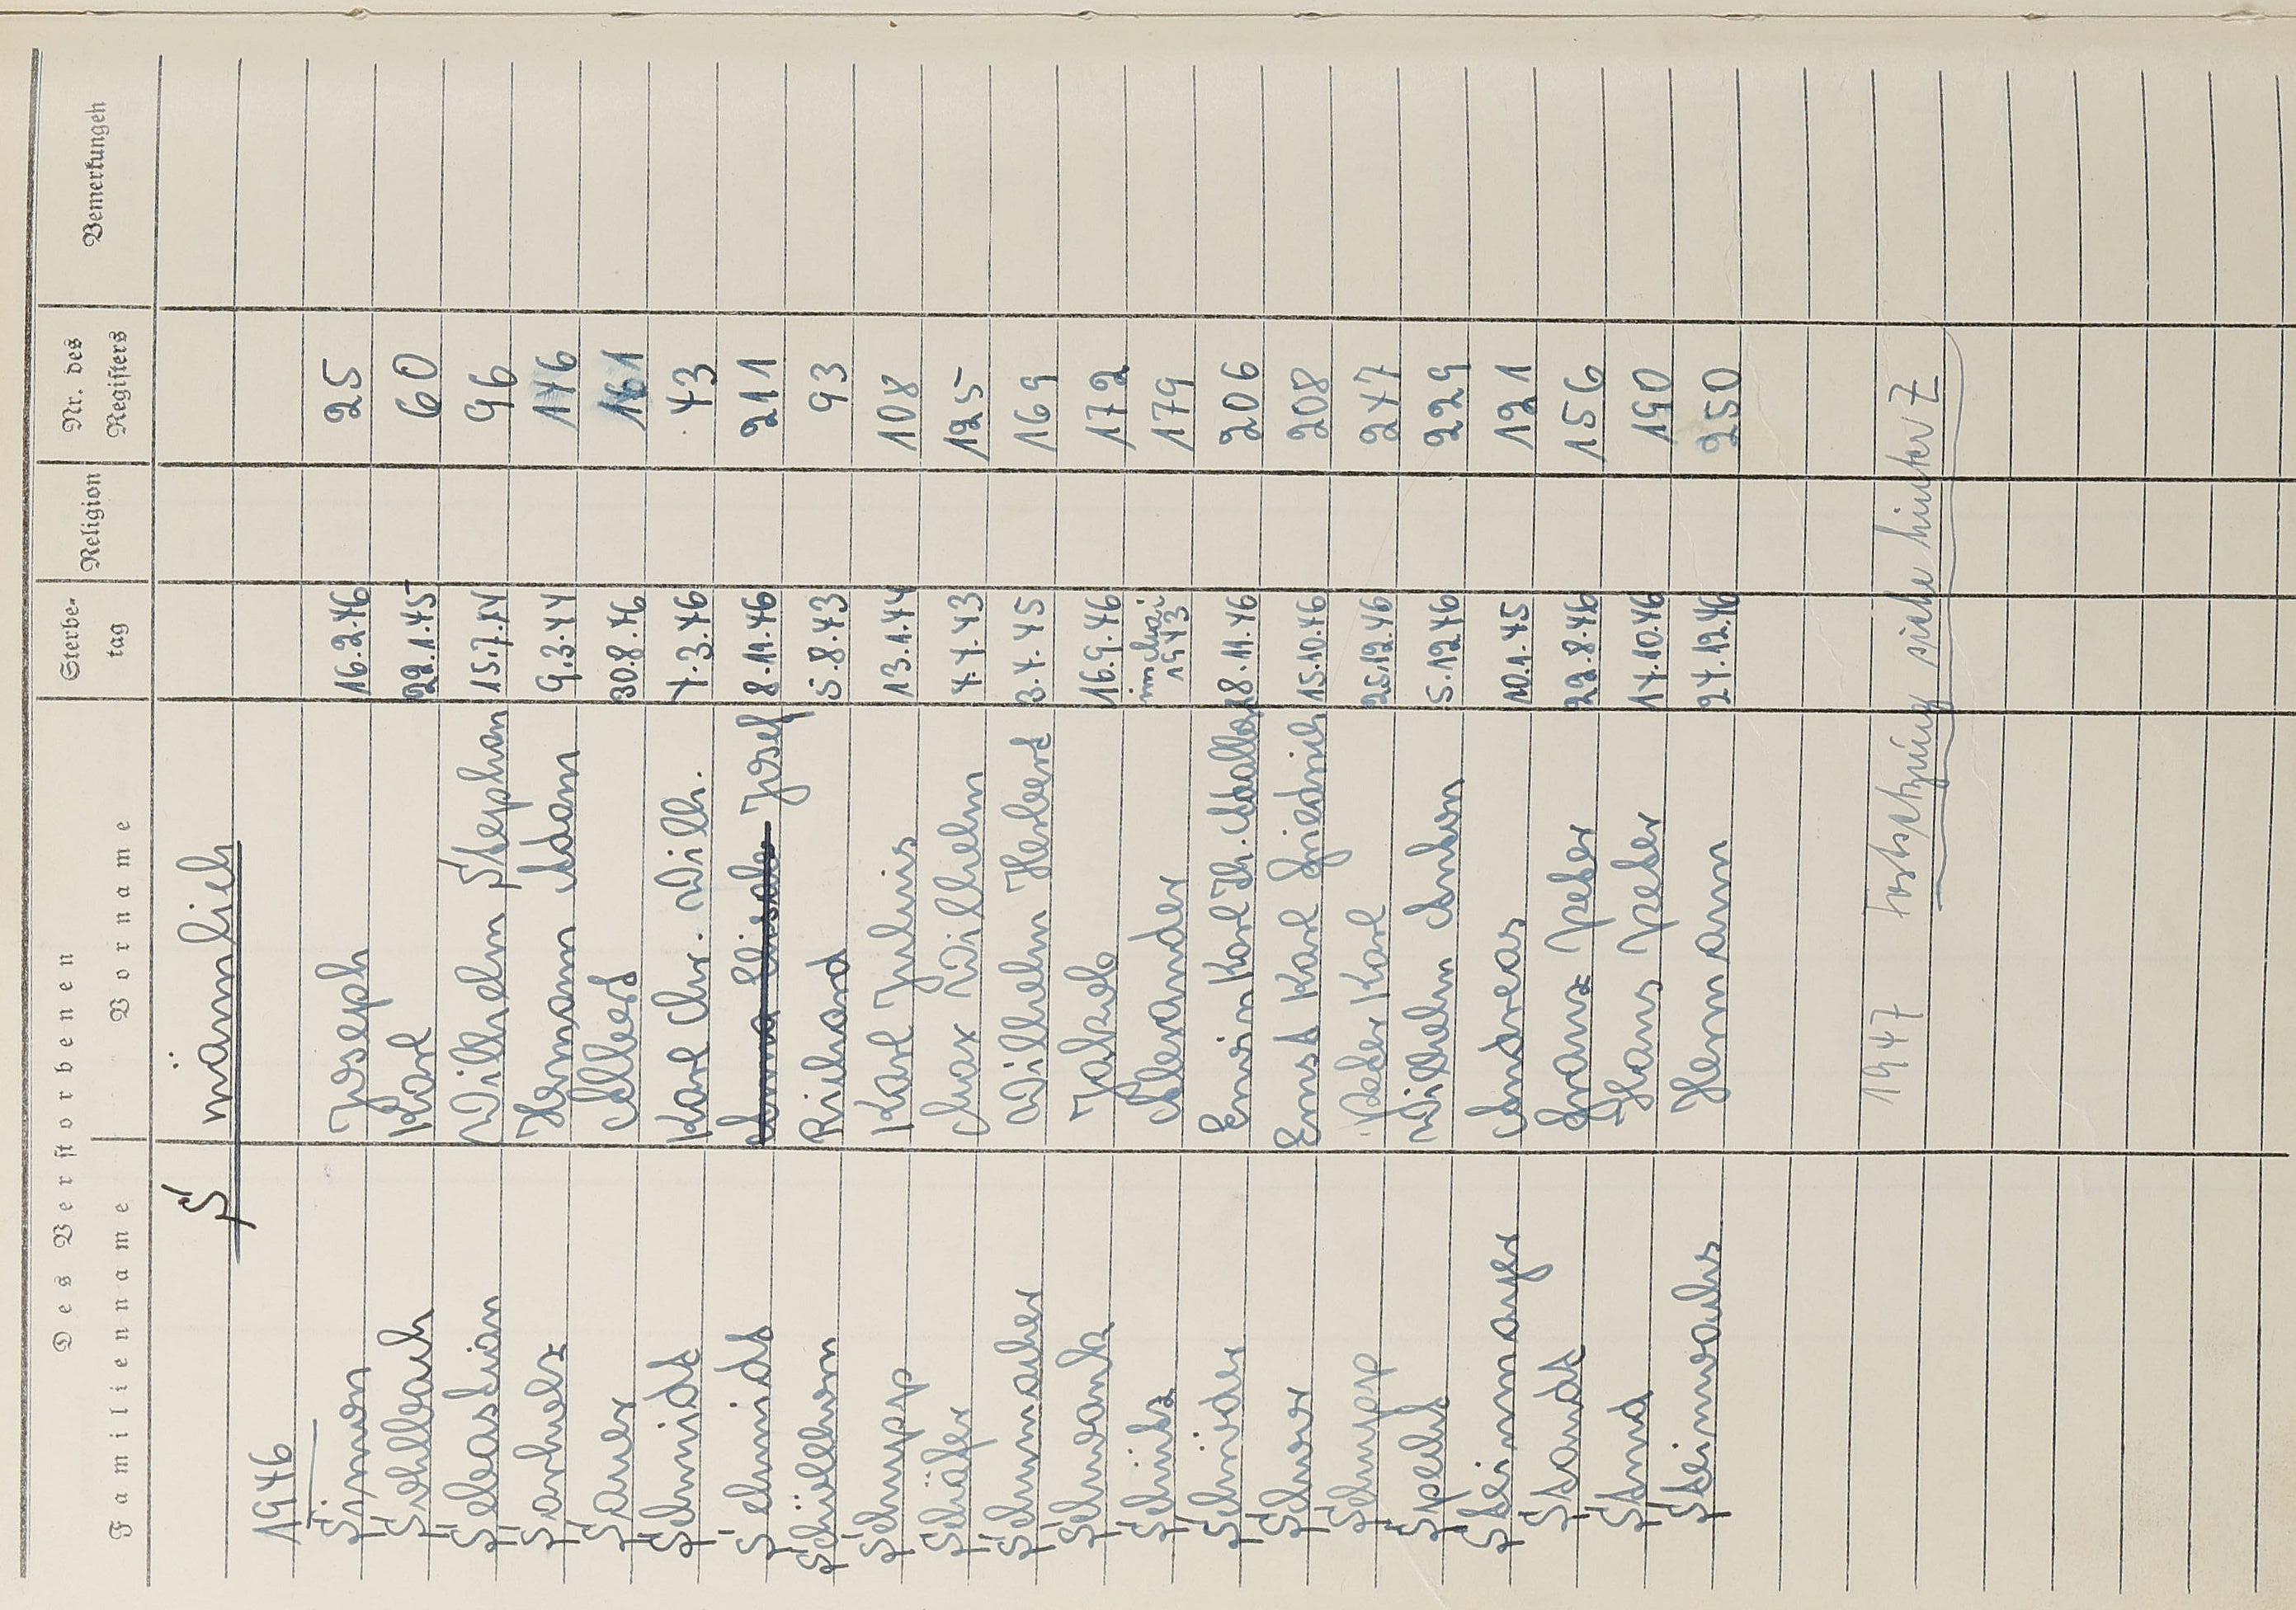 Des Verstorbenen
Familienname Vorname Sterbe- tag Religion Nr. des Registers Bemerkungen
S männlich
1946
Simon Joseph 16.2.46 25
Sohlbach Karl 22.1.45 60
Sebastian Wilhelm Stephan 15.7.44 96
Sarholz Hermann Adam 9.3.44 146
Sauer Albert 30.8.46 161
Schmidt Karl Chr. Wilh. 4.3.46 43
Schmidt Josef 8.11.46 211
Schüllhorn Richard 5.8.43 93
Schupp Karl Julius 13.1.44 108
Schäfer Max Wilhelm 4.4.43 125
Schumacher Wilhelm Herbert 3.4.45 169
Schwank Jakob 16.9.46 172
Schütz Alexander im Mai 1943 179
Schröder Erwin Karl Th. Walter 28.11.46 206
Schorr Ernst Karl Friedrich 15.10.46 208
Schupp Peter Karl 25.12.46 247
Specht Wilhelm Anton 5.12.46 229
Steinmayer Andreas 10.1.45 121
Staudt Franz Peter 22.8.46 156
Stund Hans Peter 14.10.46 190
Steinwachs Hermann 24.12.46 250
1947 Fortsetzung siehe hinter Z